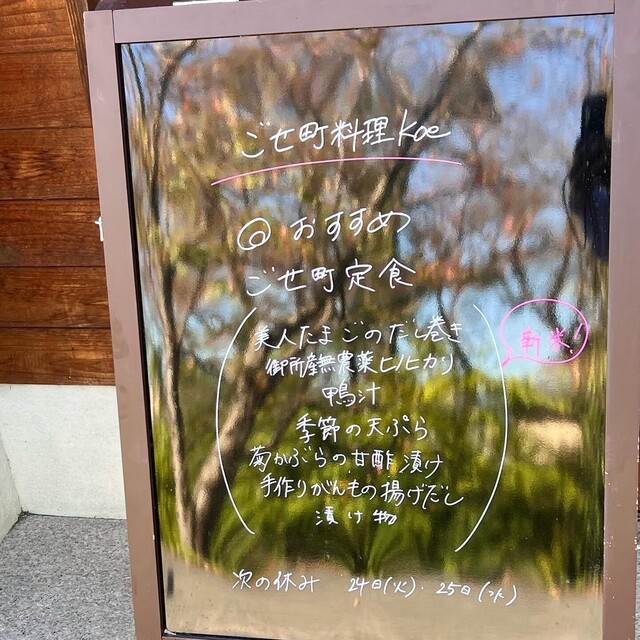 ごせ町料理 Koe
◎ おすすめ
ごせ町定食
美人たまごのだし巻き
御所産無農薬ヒノヒカリ
新米!
鴨汁
季節の天ぷら
菊かぶらの甘酢漬け
手作りがんもの揚げだし
漬け物
次の休み 24日(火)・25日(水)